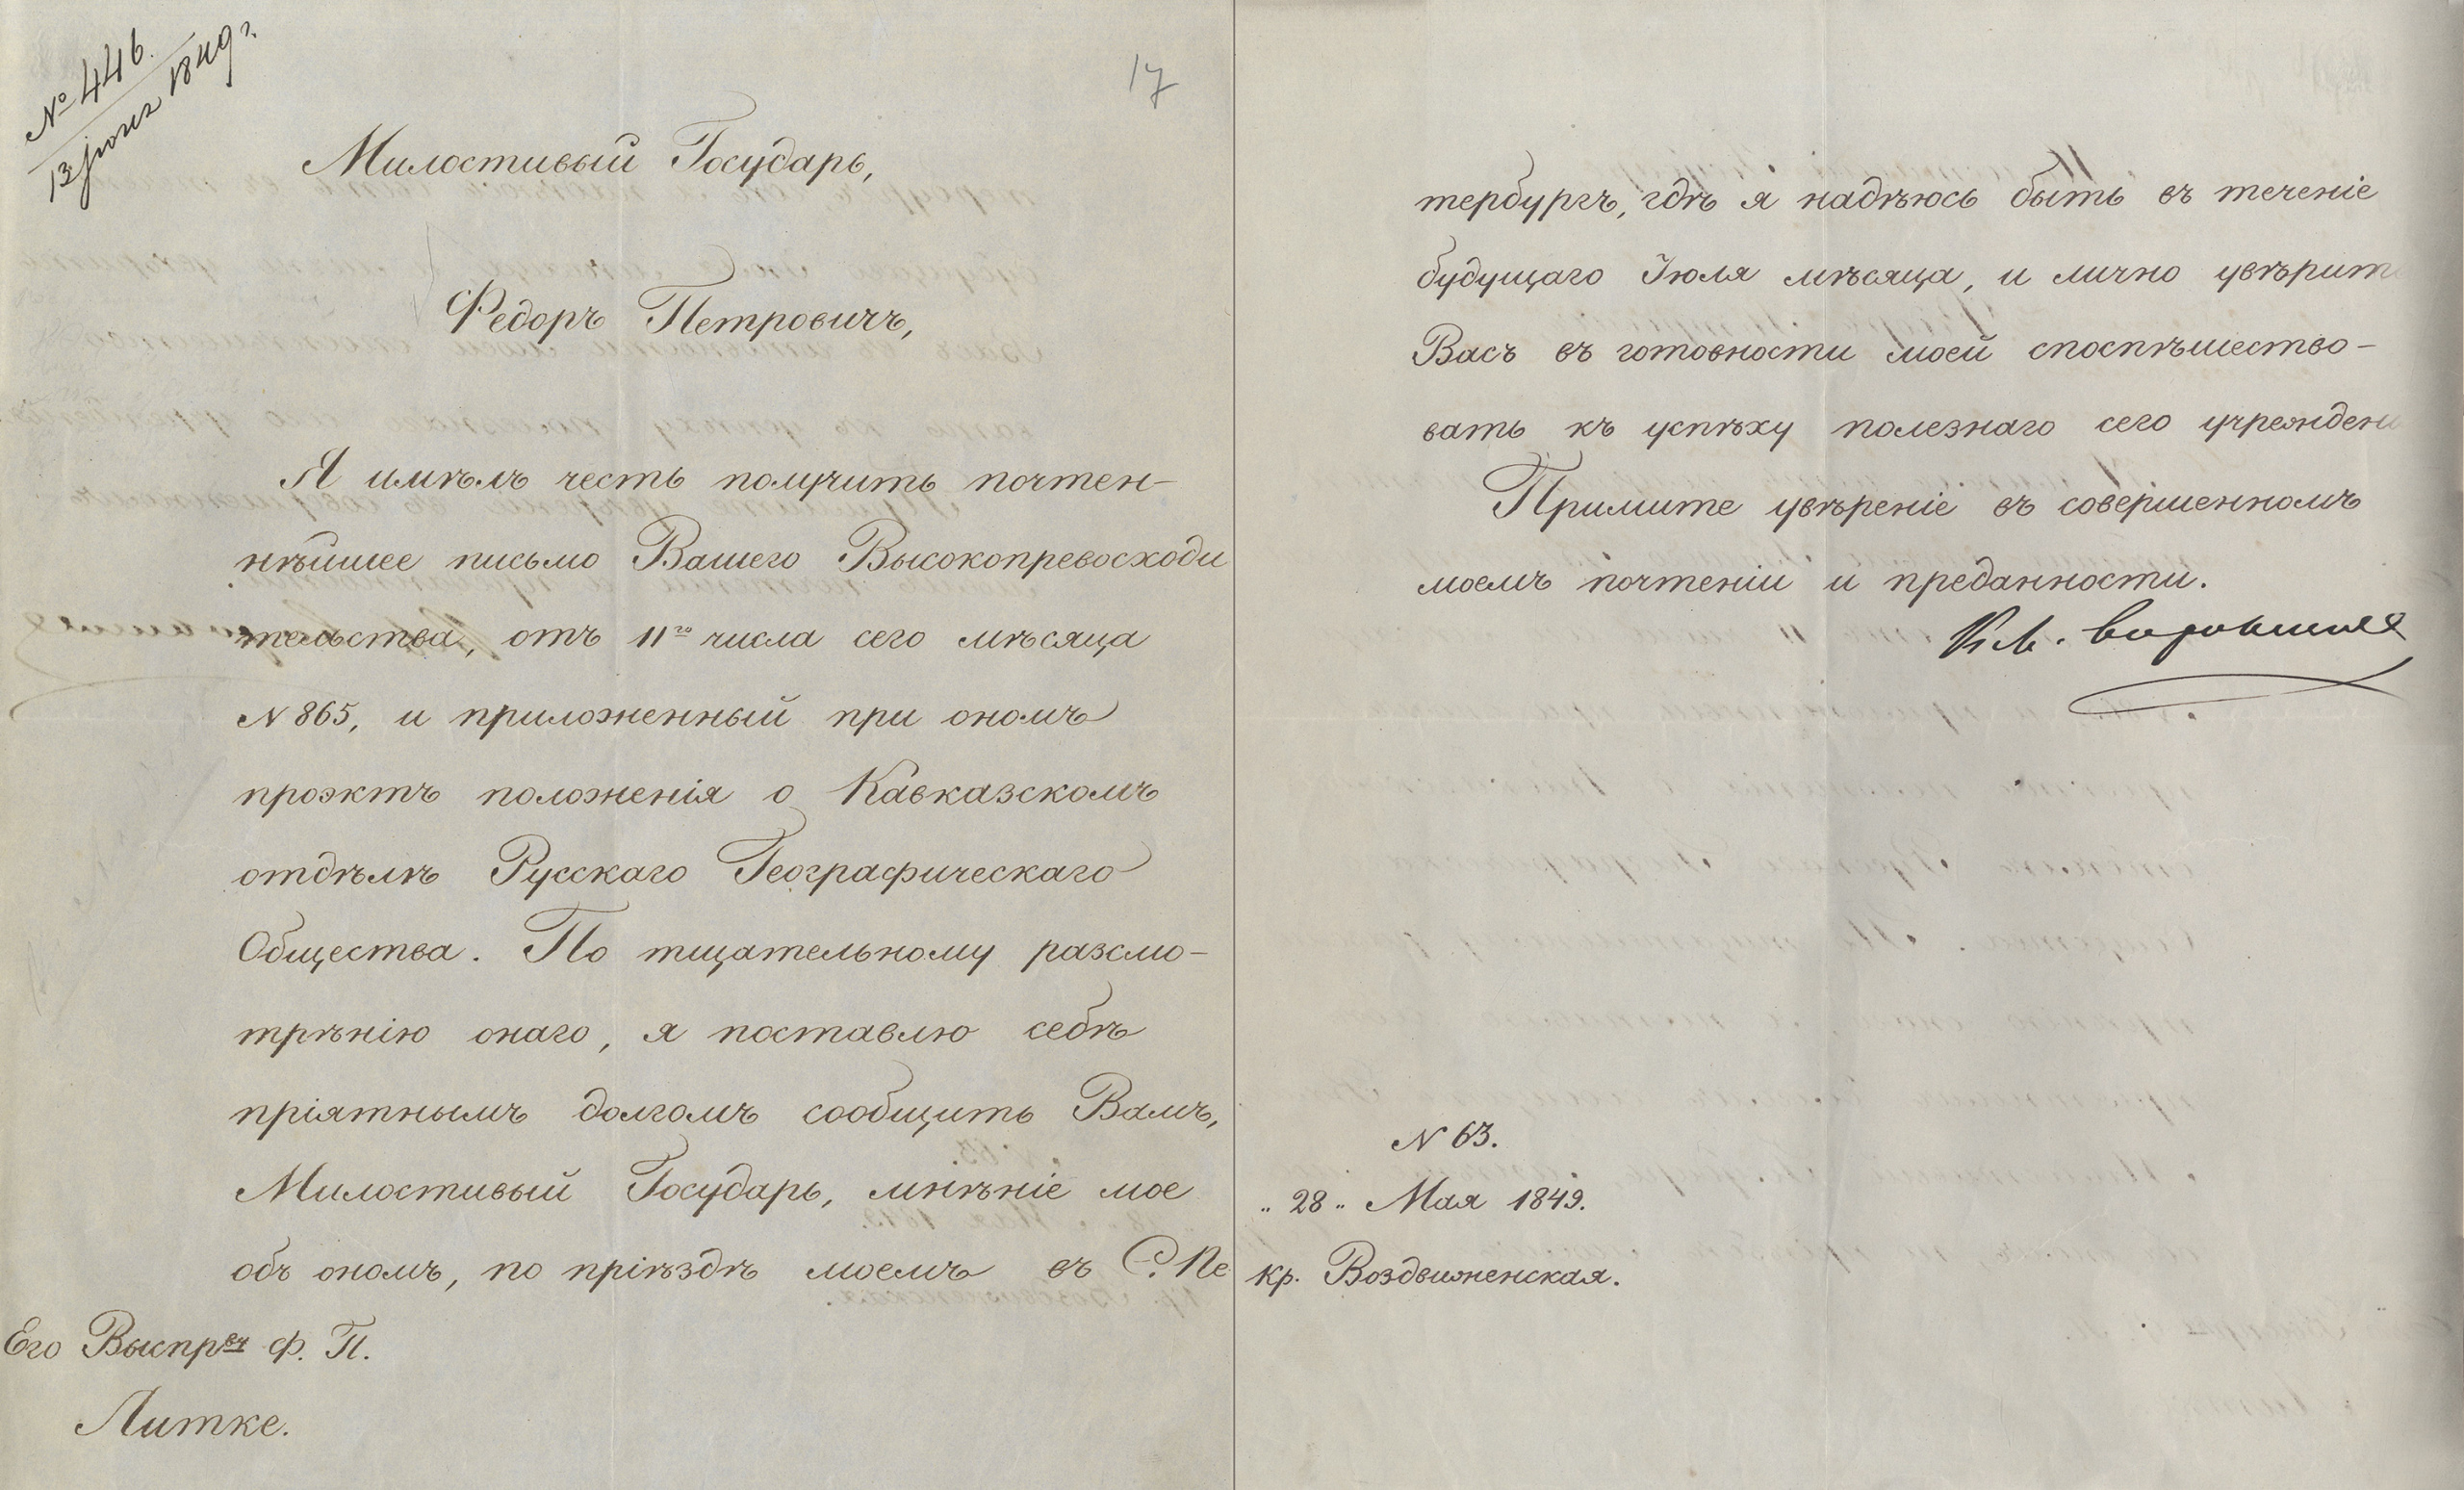 № 446.
13 юня 1849 г.
17
Милостивый Государь,
Федоръ Петровичъ,
Я имѣлъ честь получить почтен-
нѣйшее письмо Вашего Высокопревосходи
тельства, отъ 11го числа сего мѣсяца
N 865, и приложенный при ономъ
проэктъ положенія о Кавказскомъ
отдѣлѣ Русскаго Географическаго
Общества. По тщательному разсмо-
трѣнію онаго, я поставлю себѣ
пріятнымъ долгомъ сообщить Вамъ,
Милостивый Государь, мнѣніе мое
объ ономъ, по пріѣздѣ моемъ въ С. Пе
Его Выспрвч Ф. П.
Литке.
тербургъ, гдѣ я надѣюсь быть въ теченіе
будущаго Іюля мѣсяца, и лично увѣрить
Васъ въ готовности моей споспѣшество-
вать къ успѣху полезнаго сего учрежден
Примите увѣреніе въ совершенномъ
моемъ почтеніи и преданности.
Кн. Воронцовъ
N 63.
„ 28 „ Мая 1849.
кр. Воздвиженская.